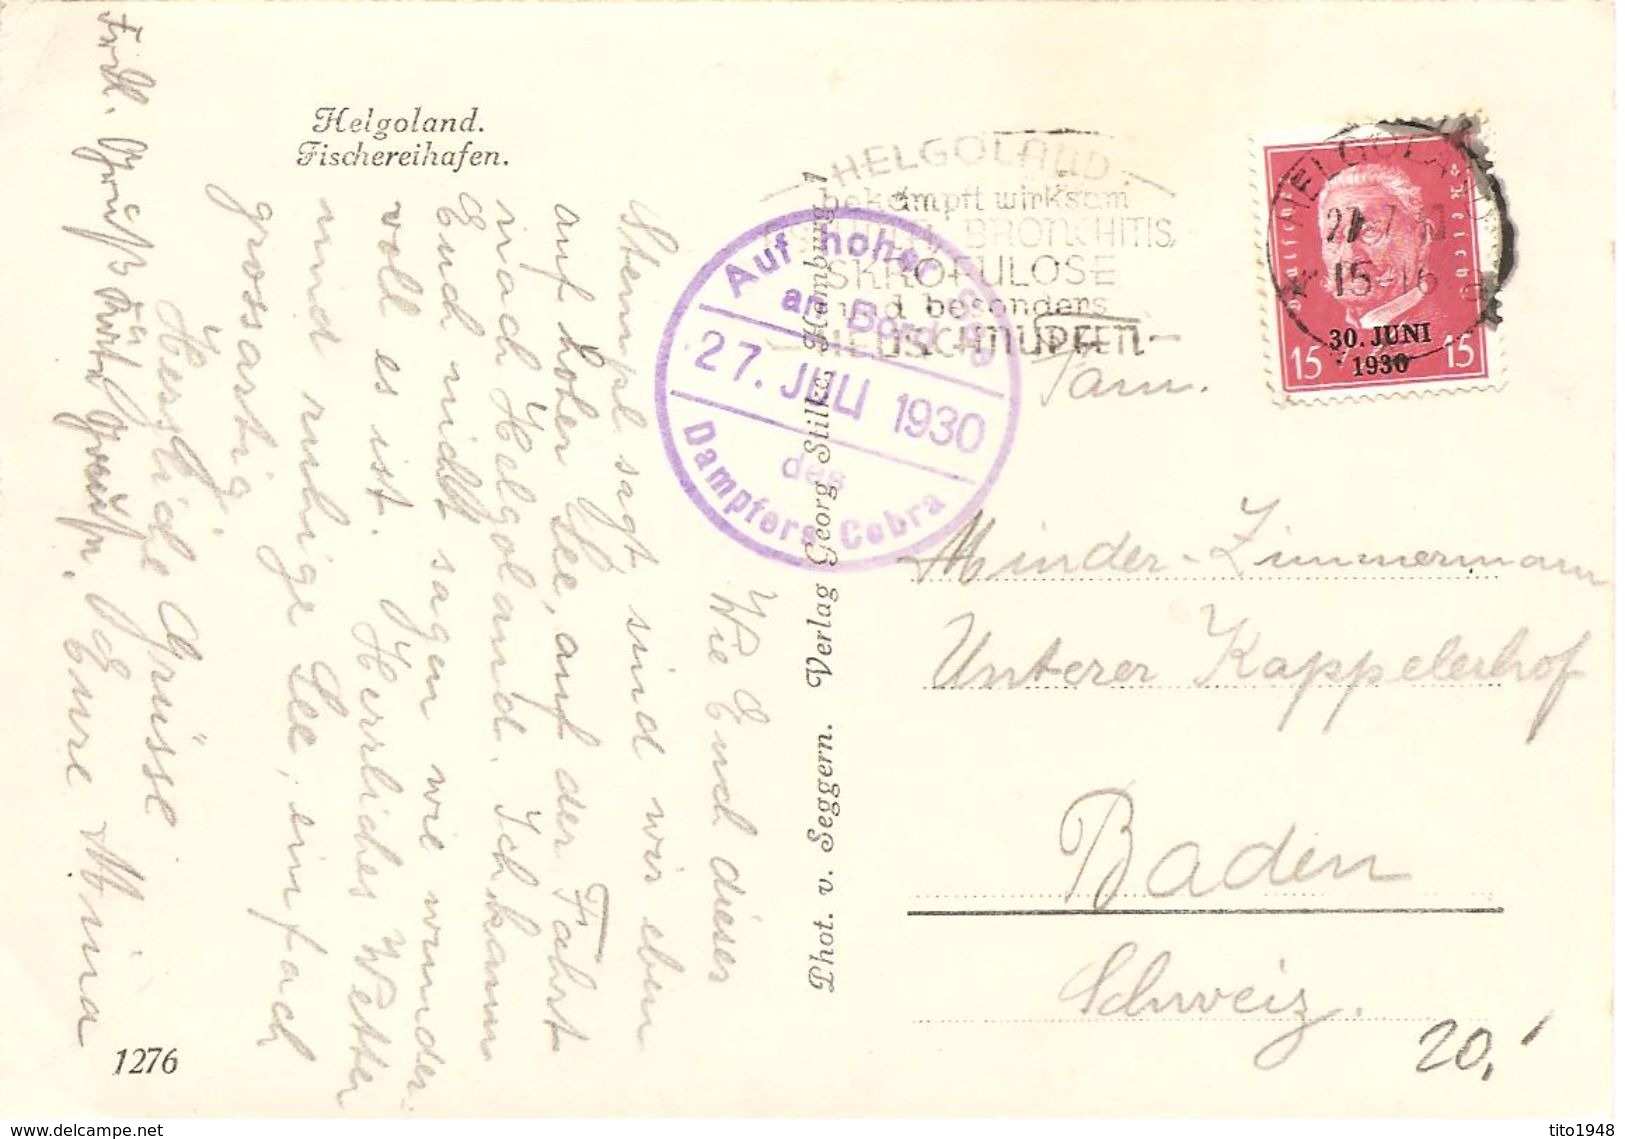 Helgoland.
Fischereihafen.
Wie Euch dieser
Stempel sagt, sind wir eben
auf hoher See, auf der Fahrt
nach Helgoland. Ich kann
Euch nicht sagen wie wunder-
voll es ist. Herrliches Wetter
und ruhige See, einfach
grossartig.
Herzliche Grüsse
Eure Mina
1276
Phot. v. Seggern. Verlag Georg Stilke, Hamburg 1
Auf hoher
an Bord
27. JULI 1930
des
Dampfers Cobra
HELGOLAND
bekämpft wirksam
BRONCHITIS,
SKROFULOSE
und besonders
HEUSCHNUPFEN
HELGOLAND
15-16
Deutsches Reich
30. JUNI
1930
15 15
Fam.
Minder-Zimmermann
Unterer Kappelerhof
Baden
Schweiz.
20,
www.delcampe.net
tito1948